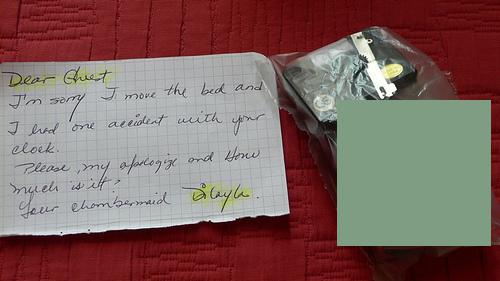 Dear Guest
I'm sorry I move the bed and
I had one accident with your
clock.
Please, my apologize and How
much is it?
Your chambermaid